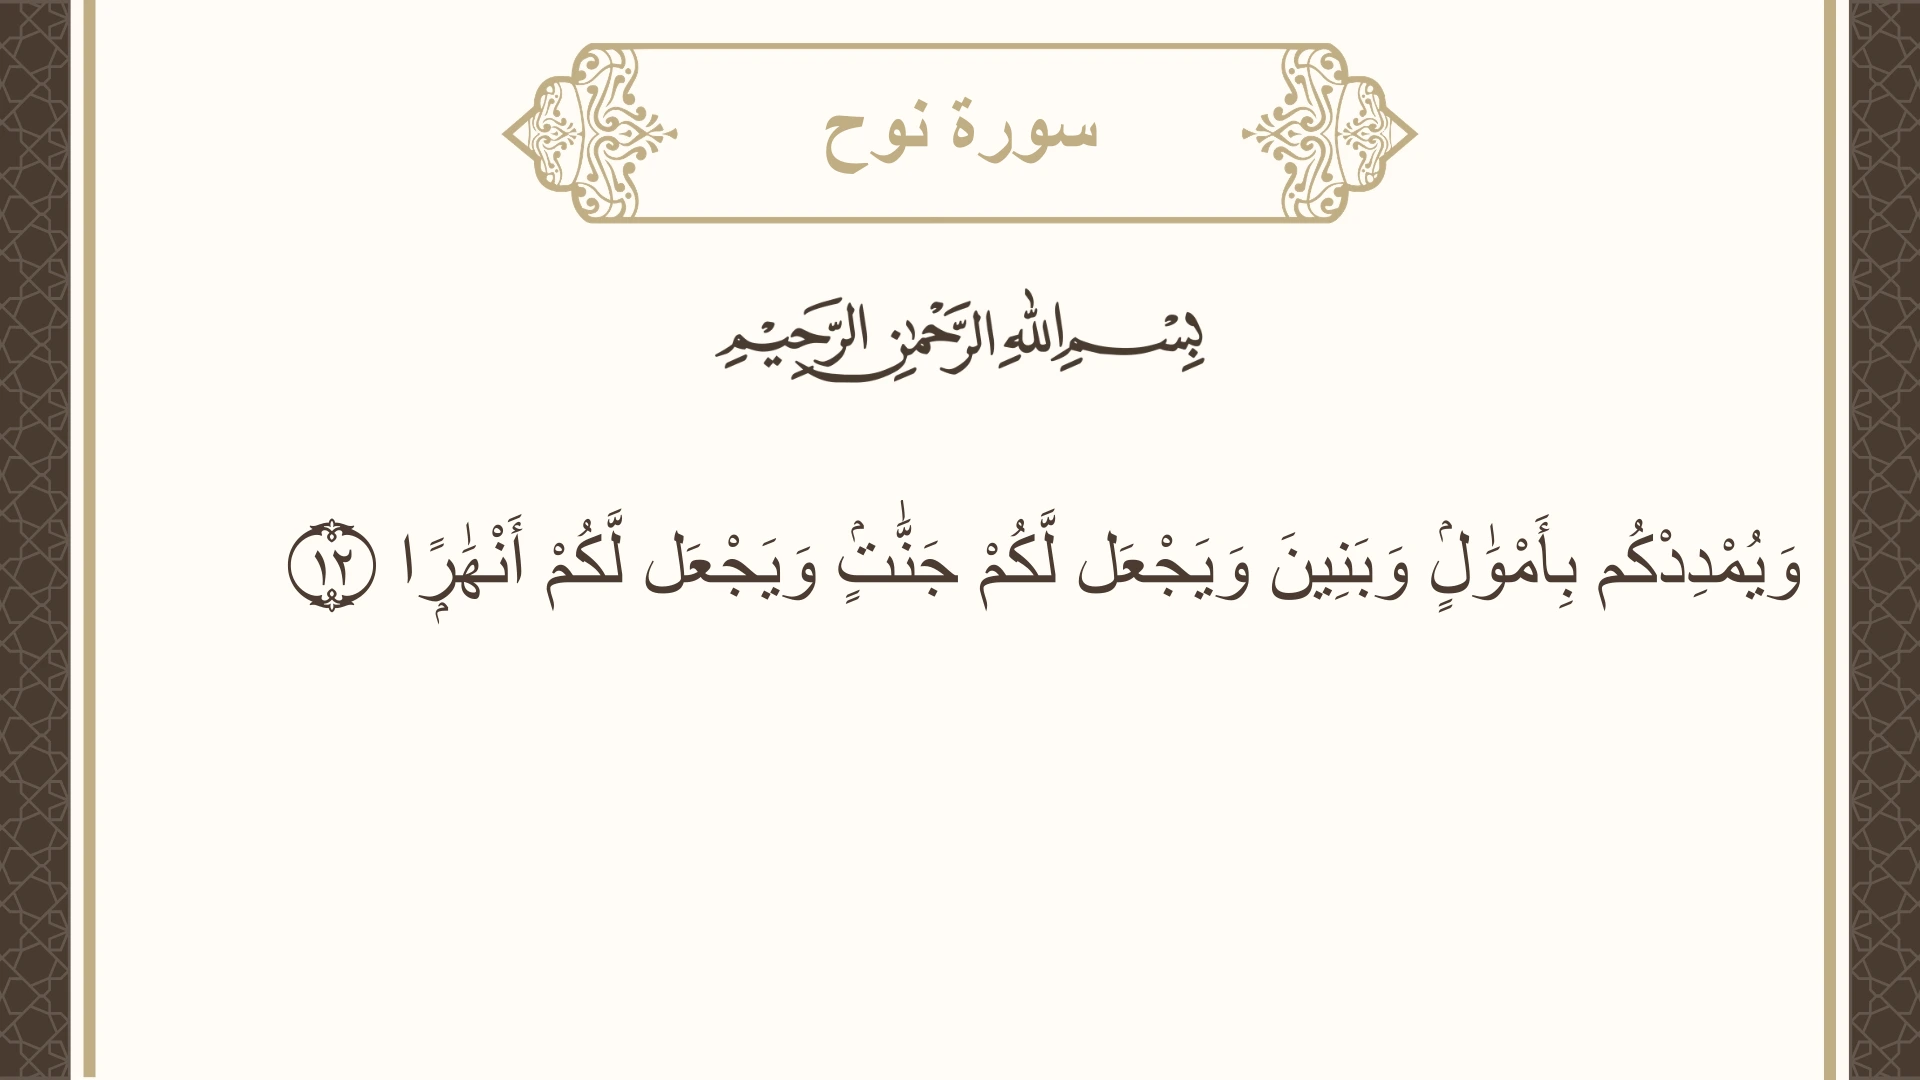 سورة نوح
بِسْمِ اللهِ الرَّحْمٰنِ الرَّحِيْمِ
وَيُمْدِدْكُم بِأَمْوَٰلٍۢ وَبَنِينَ وَيَجْعَل لَّكُمْ جَنَّٰتٍۢ وَيَجْعَل لَّكُمْ أَنْهَٰرًۭا ١٢